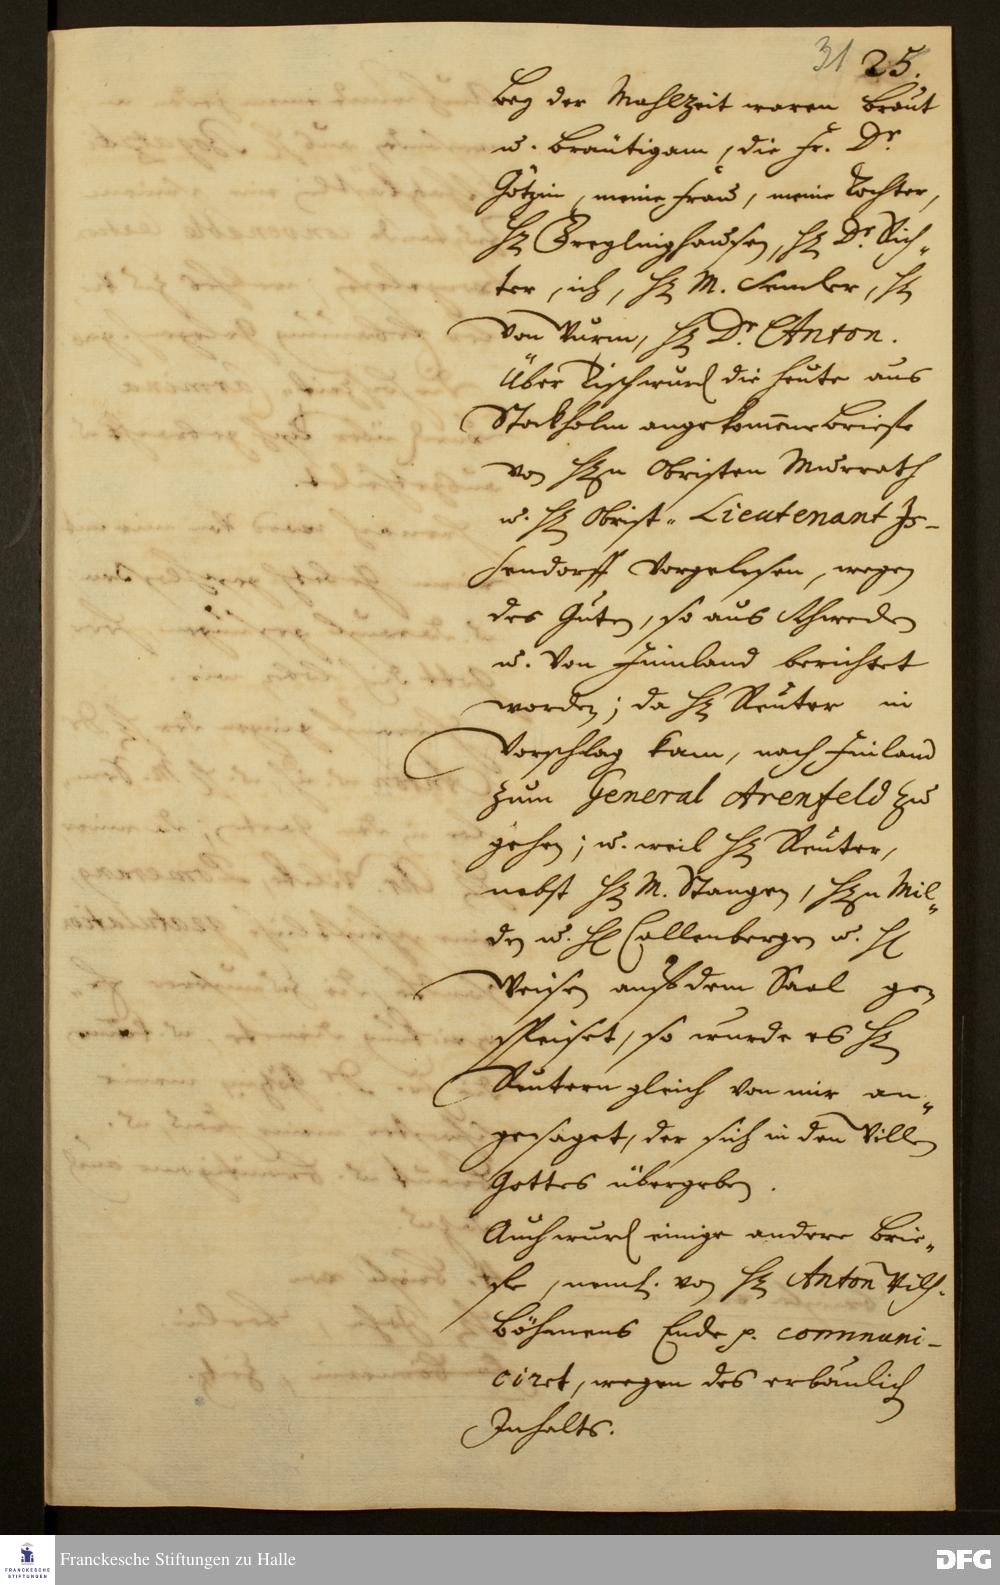 31 25.
Bey der Mahlzeit waren Braut
u. Bräutigam, die Fr. Dr.
Götzin, meine Frau, meine Tochter,
H. Greglinghausen, H. Dr. Rich-
ter, ich, H. M. Semler, H.
von Wurm, H. Dr. Anton.
Über Tisch wurd die heute aus
Stockholm angekommene Briefe
von H.n Obristen Murrath
u. H. Obrist-Lieutenant Is-
sendorff vorgelesen, wegen
des Guten, so aus Schweden
u. von Finnland berichtet
worden; da H. Reuter in
Vorschlag kam, nach Finland
zum General Arenfeld zu
gehen; u. weil H. Reuter,
nebst H. M. Stangen, H.n Mil-
de u. H. Callenbergen u. H.
Weisen auf dem Saal ge-
speiset, so wurde es H.
Reutern gleich von mir an-
gesaget, der sich in den Willen
Gottes übergeben.
Auch wurd einige andere Brie-
fe, neml. von H. Anton Wilh.
Böhmens Ende p. communi-
ciret, wegen des erbaulich
Inhalts.
Franckesche Stiftungen zu Halle
FRANCKESCHE
STIFTUNGEN
DFG